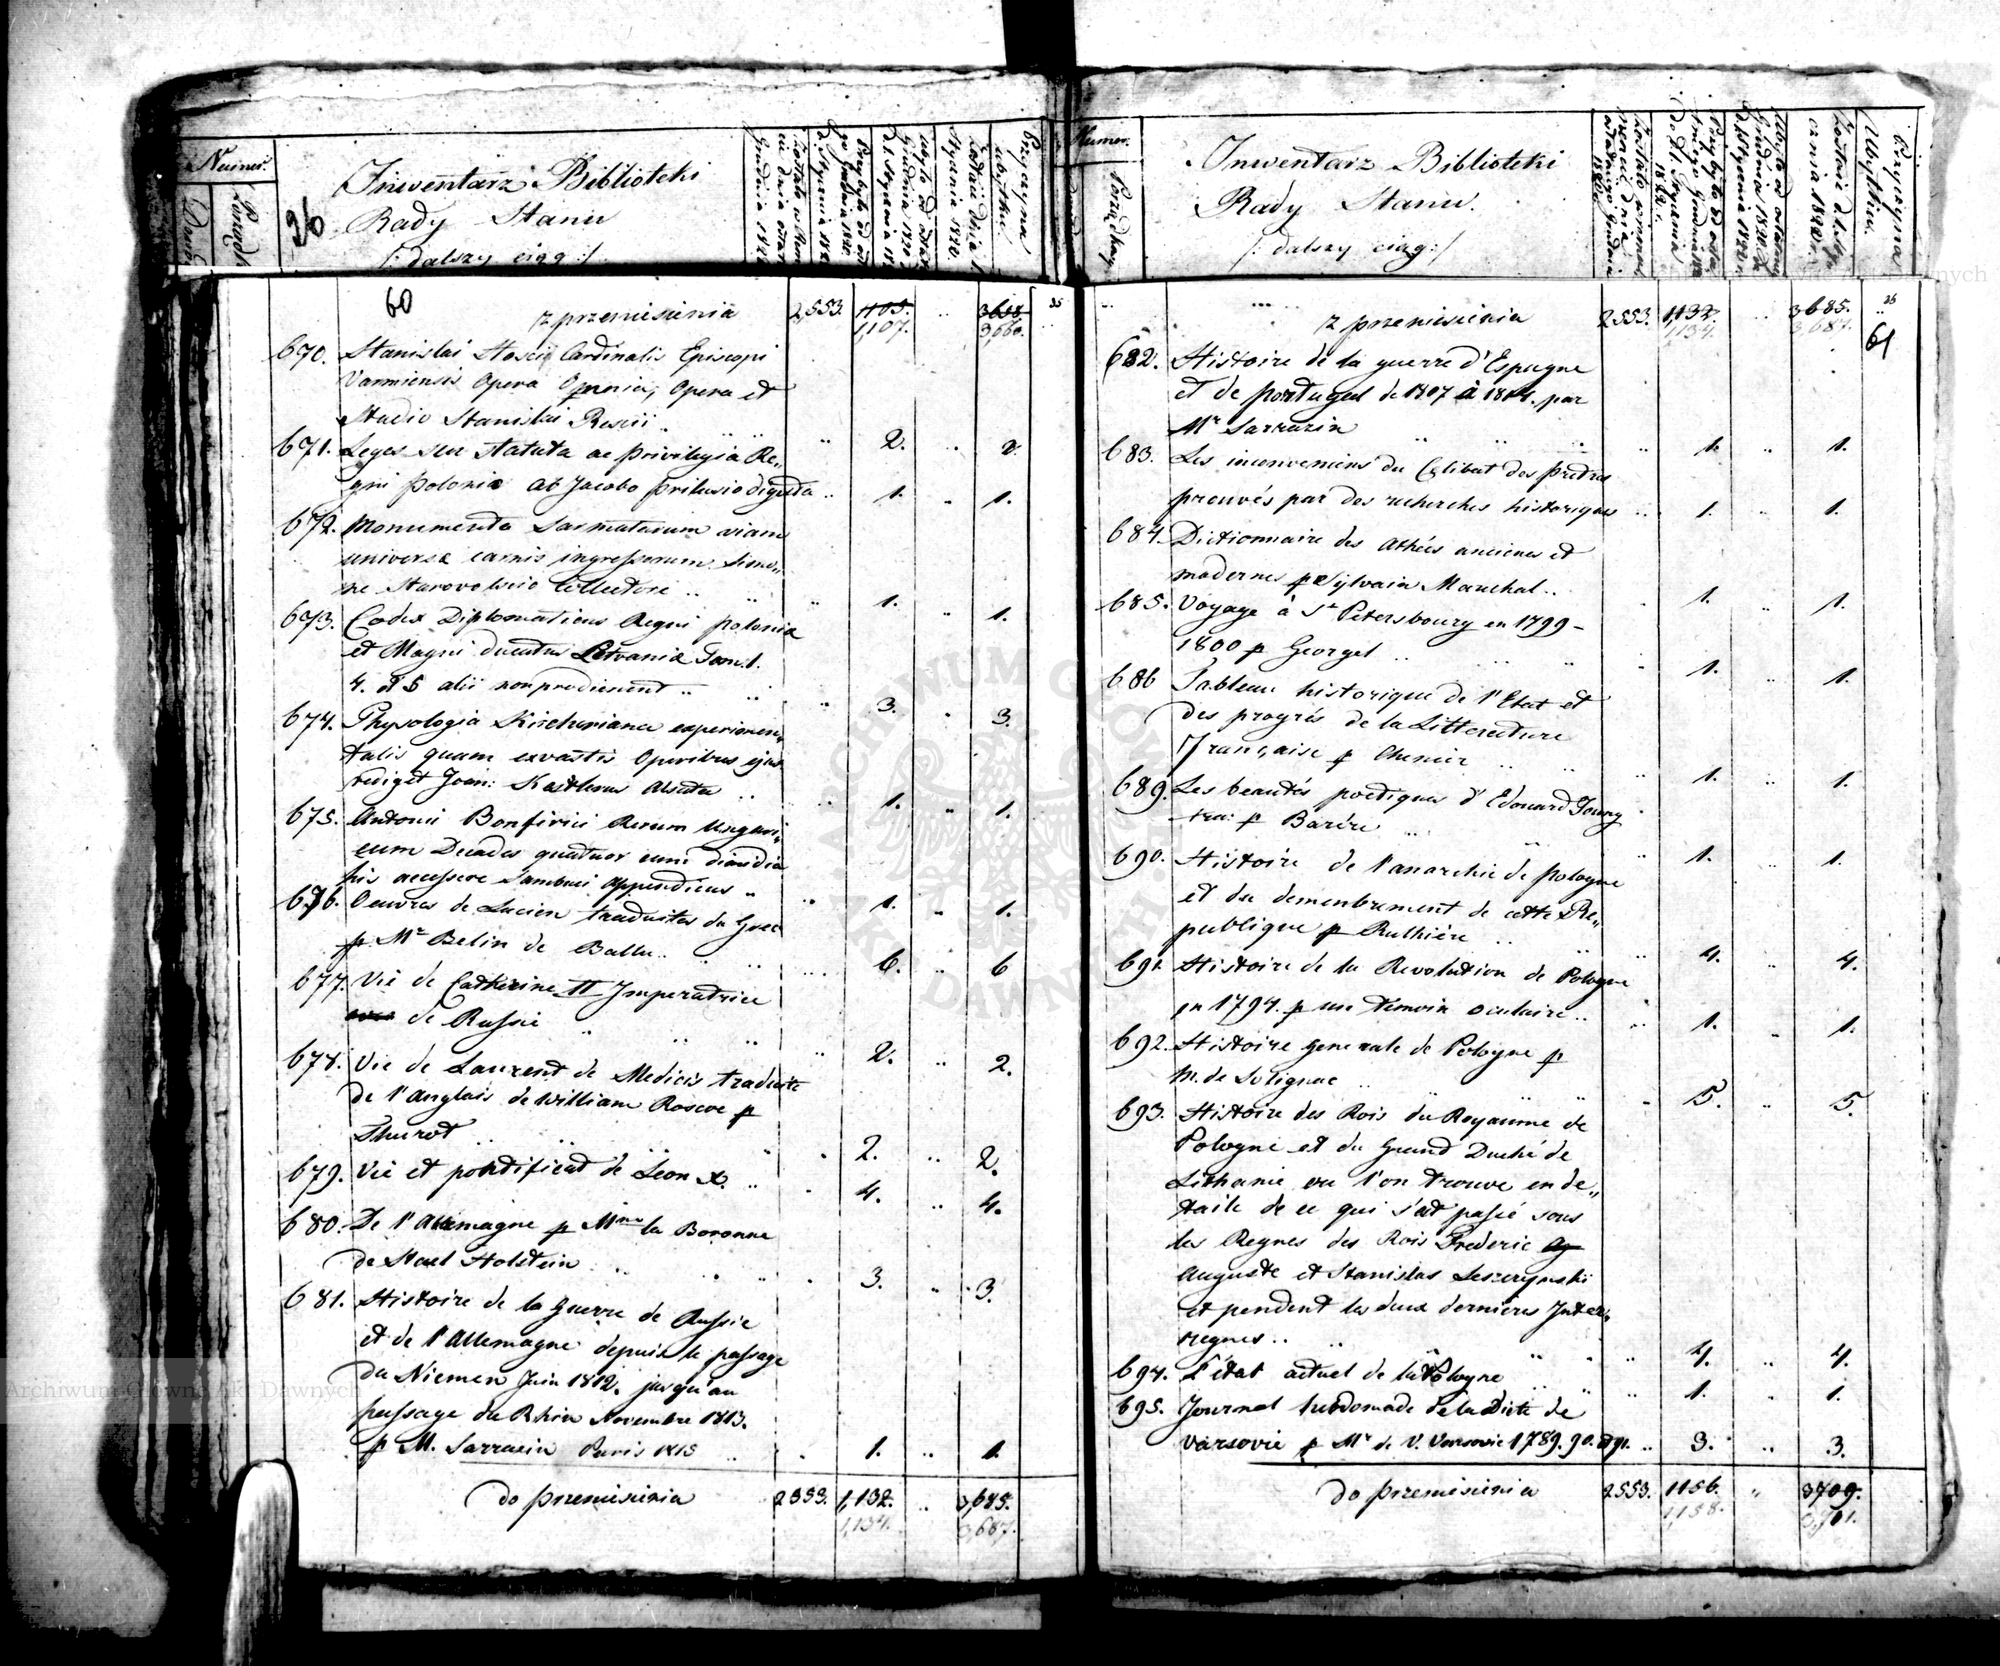 Numer.
Inwentarz Biblioteki
Rady Stanu
/: dalszy ciąg :/
Przyczyna
36
60
z przeniesienia 2,553. 1105. .. 3658 35
1,107. 3,660.
670. Stanislai Hoscii Cardinalis Episcopi
Varmiensis Opera Omnia, Opera et
Studio Stanislai Rescii .. 2. .. 2
671. Leges seu Statuta ac privilegia Re„
gni Poloniæ ab Jacobo Prilusio digesta .. 1. .. 1.
672. Monumenta Sarmatarum viam
universæ carnis ingressorum Simo„
ne Starovolscio Collectore .. 1. .. 1.
673. Codex Diplomaticus Regni Poloniæ
et Magni Ducatus Litvaniæ Tom. 1.
4. et 5 alii non prodierunt .. 3. .. 3.
674. Physologia Kircheriana experimen„
talis quam ex vastis Operibus ejus
rediget Joan: Kestlerus Alsata .. 1. .. 1.
675. Antonii Bonfinii Rerum Ungari„
cum Decades quatuor cum dimidia
his accessere Sambuci appendices .. 1. .. 1.
676. Oeuvres de Lucien traduites du Grec
p Mr Belin de Ballu .. 6. .. 6
677. Vie de Catherine II Imperatrice
de Russie .. 2. .. 2.
678. Vie de Laurent de Medicis traduite
de l'anglais de William Roscoe p
Thurot .. 2. .. 2.
679. Vie et pontificat de Leon X. .. 4. .. 4.
680. De l'Allemagne p Mme la Baronne
de Stael Holstein .. 3. .. 3.
681. Histoire de la Guerre de Russie
et de l'Allemagne depuis le passage
du Niemen Juin 1812. jusqu'au
passage du Rhin Novembre 1813.
p M. Sarrazin Paris 1815 .. 1. .. 1.
do przeniesienia 2553. 1,132. .. 3,685.
1,134. 3,687.
Numer.
Porządkowy
Inwentarz Biblioteki
Rady Stanu.
/: dalszy ciąg :/
Przyczyna
Ubytku.
z przeniesienia 2553. 1,132. 3685. 36
1,134. 3,687. 61
682. Histoire de la guerre d'Espagne
et de Portugal de 1807 à 1814. par
Mr Sarrazin .. 1. .. 1.
683. Les inconveniens du Celibat des prêtres
prouvés par des recherches historiques .. 1. .. 1.
684. Dictionnaire des Athées anciens et
modernes p Sylvain Marechal .. 1. .. 1.
685. Voyage à St Petersbourg en 1799 -
1800 p Georgel .. 1. .. 1.
686 Tableau historique de l'Etat et
des progrés de la Litterature
Française p Chenier .. 1. .. 1.
689. Les beautés poetiques d'Edouard Young
tra: p Barére .. 1. .. 1.
690. Histoire de l'anarchie de Pologne
et du demembrement de cette Re„
publique p Rulhiére .. 4. .. 4.
691. Histoire de la Revolution de Pologne
en 1794. p un témoin oculaire .. 1. .. 1.
692. Histoire generale de Pologne p
M. de Solignac .. 5. .. 5.
693. Histoire des Rois du Royaume de
Pologne et du Grand Duché de
Lithanie ou l'on trouve en de„
taile de ce qui s'est passé sous
les Regnes des Rois Frederic
Auguste et Stanislas Leszczynski
et pendent les deux dernières Inter„
regnes .. 4. .. 4.
694. L'état actuel de la Pologne .. 1. .. 1.
695. Journal hebdomade de la Diete de
Varsovie p Mr de V. Varsovie 1789. 90. et 91. .. 3. .. 3.
do przeniesienia 2553. 1156. „ 3709.
1,158. 3,711.
ARCHIWUM GŁÓWNE AKT DAWNYCH
Archiwum Główne Akt Dawnych